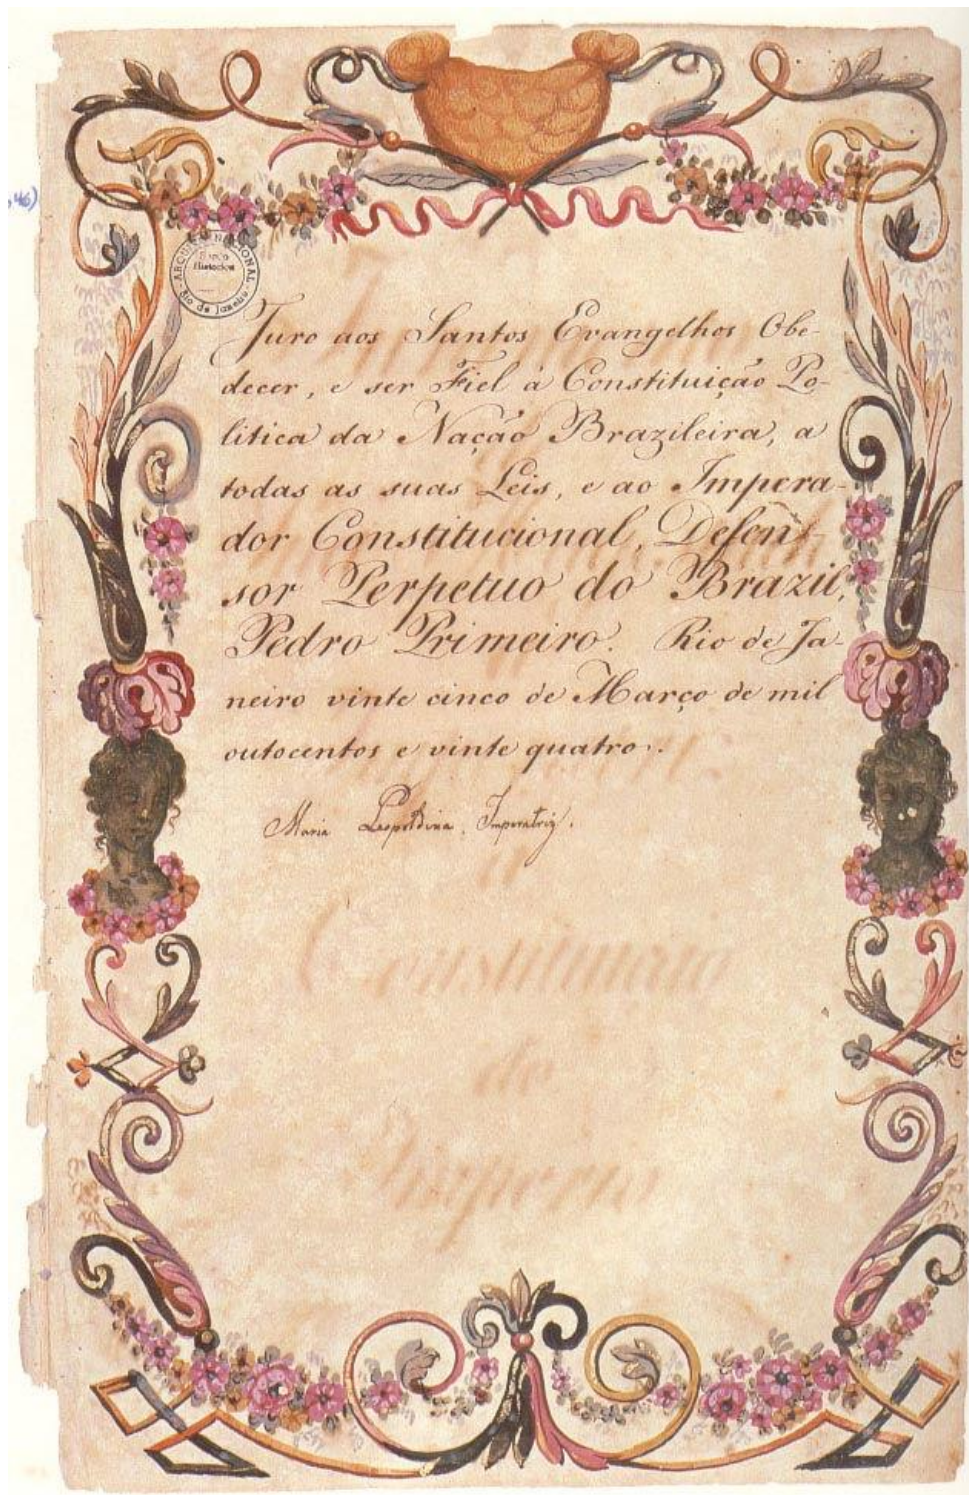 346)
ARQUIVO NACIONAL
Rio de Janeiro
Juro aos Santos Evangelhos Obe-
decer, e ser Fiel à Constituição Po-
litica da Nação Brazileira, a
todas as suas Leis, e ao Impera-
dor Constitucional, Defen-
sor Perpetuo do Brazil,
Pedro Primeiro. Rio de Ja-
neiro vinte cinco de Março de mil
outocentos e vinte quatro.
Maria Leopoldina Imperatriz.
Constituição
do
Imperio